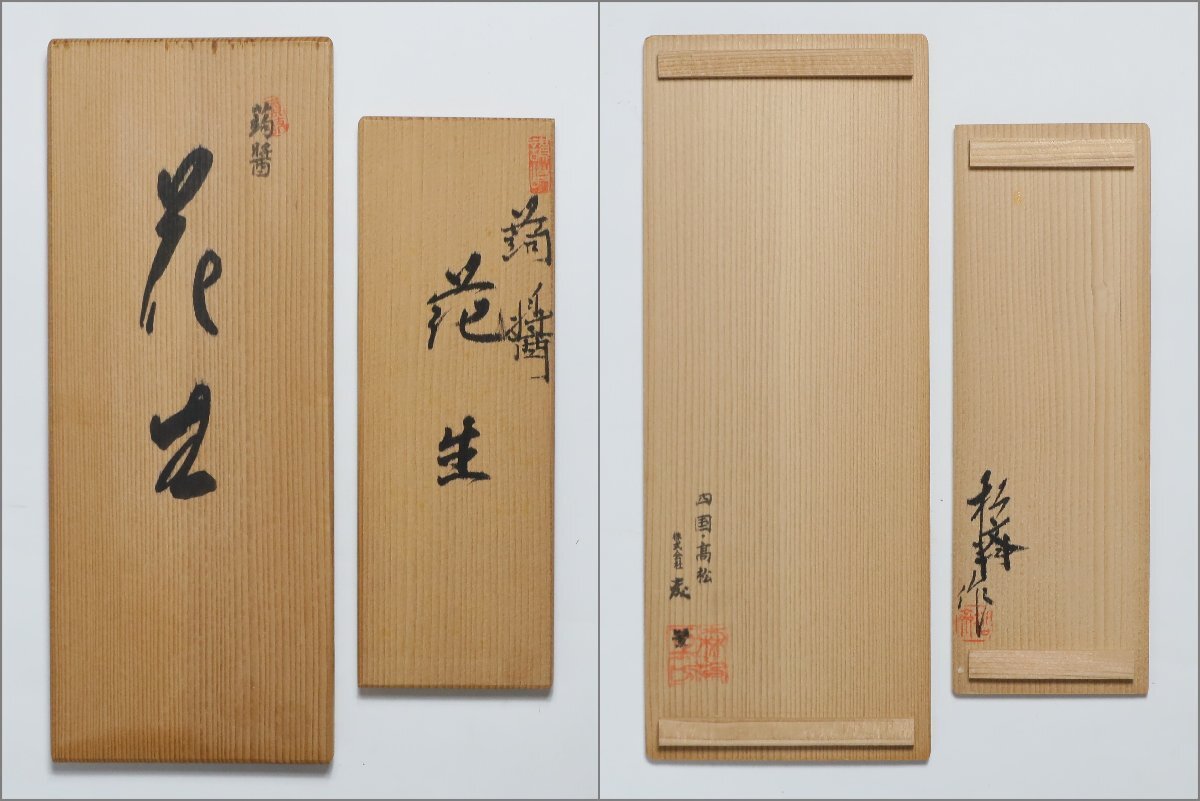 蒟醤
花生
蒟醤
花生
四国・高松
株式会社
作